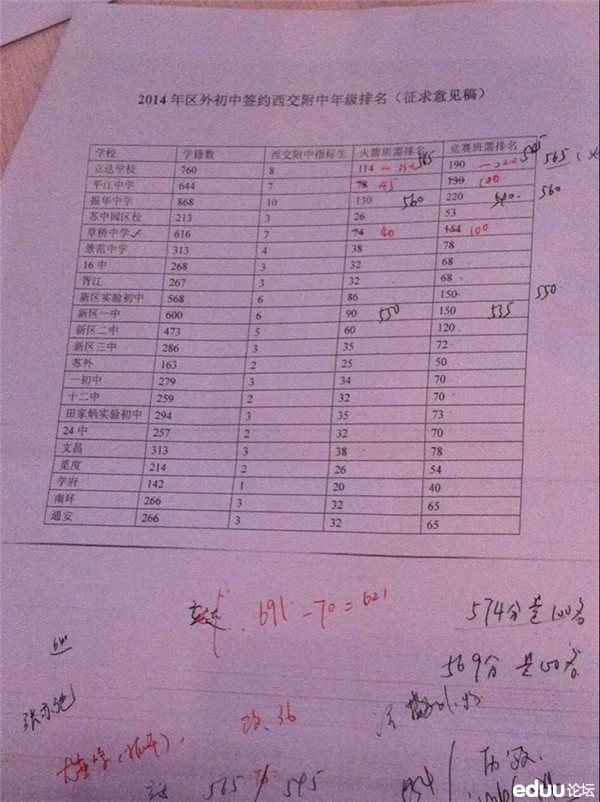 2014年区外初中签约西交附中年级排名（征求意见稿）
学校 学籍数 西交附中指标生 火箭班需排名 竞赛班需排名 545
立达学校 760 8 114 190 565
平江中学 644 7 78 45 130 100
振华中学 868 10 130 560 220 540 560
苏中园区校 213 3 26 53
草桥中学 616 7 74 40 154 100
景范中学 313 4 38 78
16中 268 3 32 68
胥江 267 3 32 68
新区实验初中 568 6 86 150 550
新区一中 600 6 90 550 150 535
新区二中 473 5 60 120
新区三中 286 3 35 72
苏外 163 2 25 50
一初中 279 3 34 70
十二中 259 2 32 70
田家炳实验初中 294 3 35 73
24中 257 2 32 70
文昌 313 3 38 78
觅度 214 2 26 54
学府 142 1 20 40
南环 266 3 32 65
通安 266 3 32 65
691-70=621
574分是100名
569分是150名
36
565/545
eduu论坛